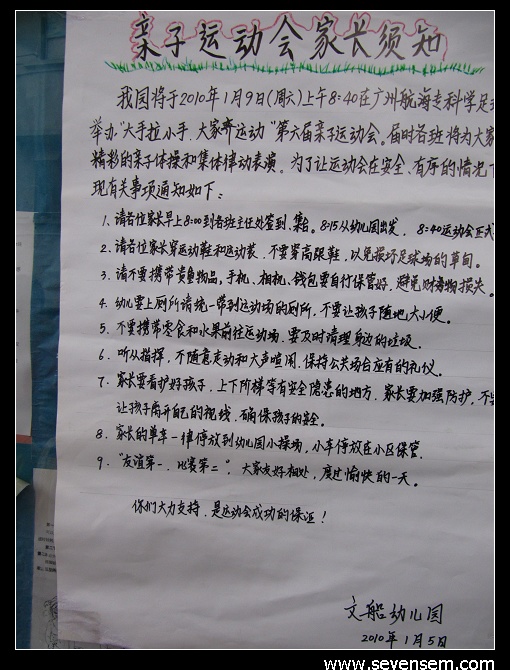 亲子运动会家长须知
我园将于2010年1月9日(周六)上午8:40在广州航海专科学足球
举办"大手拉小手、大家齐运动"第六届亲子运动会。届时各班将为大家
精彩的亲子体操和集体律动表演。为了让运动会在安全、有序的情况下
现有关事项通知如下:
1、请各位家长早上8:00到各班主任处签到、集合。8:15从幼儿园出发、8:40运动会正式
2、请各位家长穿运动鞋和运动装、不要穿高跟鞋,以免损坏足球场的草间。
3、请不要携带贵重物品,手机、相机、钱包要自行保管好,避免财物损失。
4、幼儿要上厕所请统一带到运动场的厕所,不要让孩子随地大小便。
5、不要携带零食和水果前往运动场、要及时清理身边的垃圾。
6、听从指挥,不随意走动和大声喧闹、保持公共场合应有的礼仪。
7、家长要看护好孩子,上下阶梯等有安全隐患的地方、家长要加强防护,不要
让孩子离开自己的视线、确保孩子的安全。
8、家长的单车一律停放到幼儿园小操场,小车停放在小区保管。
9、"友谊第一、比赛第二",大家友好相处,度过愉快的一天。
你们大力支持、是运动会成功的保证!
文船幼儿园
2010年1月5日
www.sevensem.com